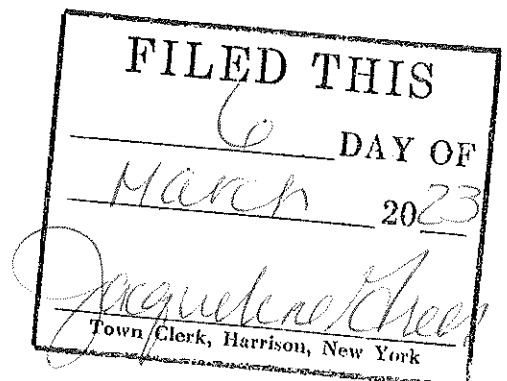 FILED THIS
6 DAY OF
March 2023
Jacqueline Greer
Town Clerk, Harrison, New York